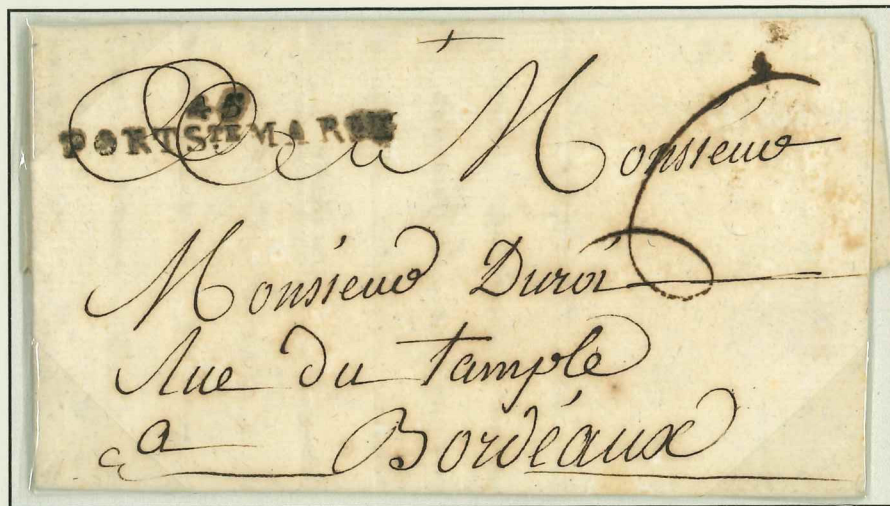 45
PORT STE MARIE
A Monsieur
6
Monsieur Duroi
Rue du tample
a Bordéaux